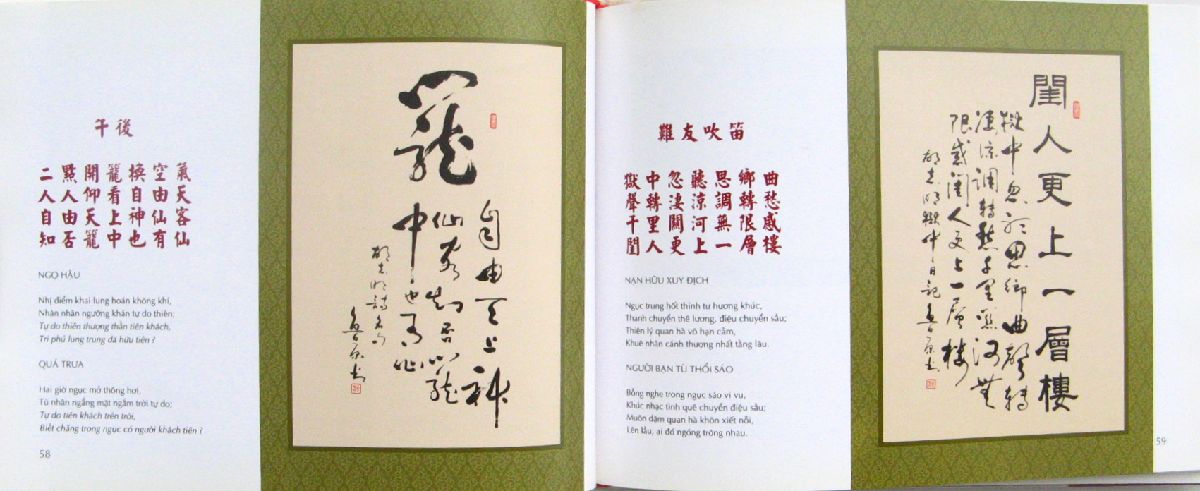 午後
二點開籠換空氣
人人仰看自由天
自由天上神仙客
知否籠中也有仙
NGỌ HẬU
Nhị điểm khai lung hoán không khí,
Nhân nhân ngưỡng khán tự do thiên;
Tự do thiên thượng thần tiên khách,
Tri phủ lung trung dã hữu tiên ?
QUÁ TRƯA
Hai giờ ngục mở thông hơi,
Tù nhân ngẳng mặt ngắm trời tự do;
Tự do tiên khách trên trời,
Biết chăng trong ngục có người khách tiên ?
58
籠
自由天上神
仙客知否籠
中也有仙
胡志明詩句
難友吹笛
獄中忽聽思鄉曲
聲轉淒涼調轉愁
千里關河無限感
閨人更上一層樓
NẠN HỮU XUY ĐỊCH
Ngục trung hốt thính tư hương khúc,
Thanh chuyển thê lương, điệu chuyển sầu;
Thiên lý quan hà vô hạn cảm,
Khuê nhân cánh thượng nhất tằng lâu.
NGƯỜI BẠN TÙ THỔI SÁO
Bỗng nghe trong ngục sáo vi vu,
Khúc nhạc tình quê chuyển điệu sầu;
Muôn dặm quan hà khôn xiết nỗi,
Lên lầu, ai đó ngóng trông nhau.
閨人更上一層樓
獄中忽聽思鄉曲聲轉
淒涼調轉愁千里關河無
限感閨人更上一層樓
胡志明獄中日記
59